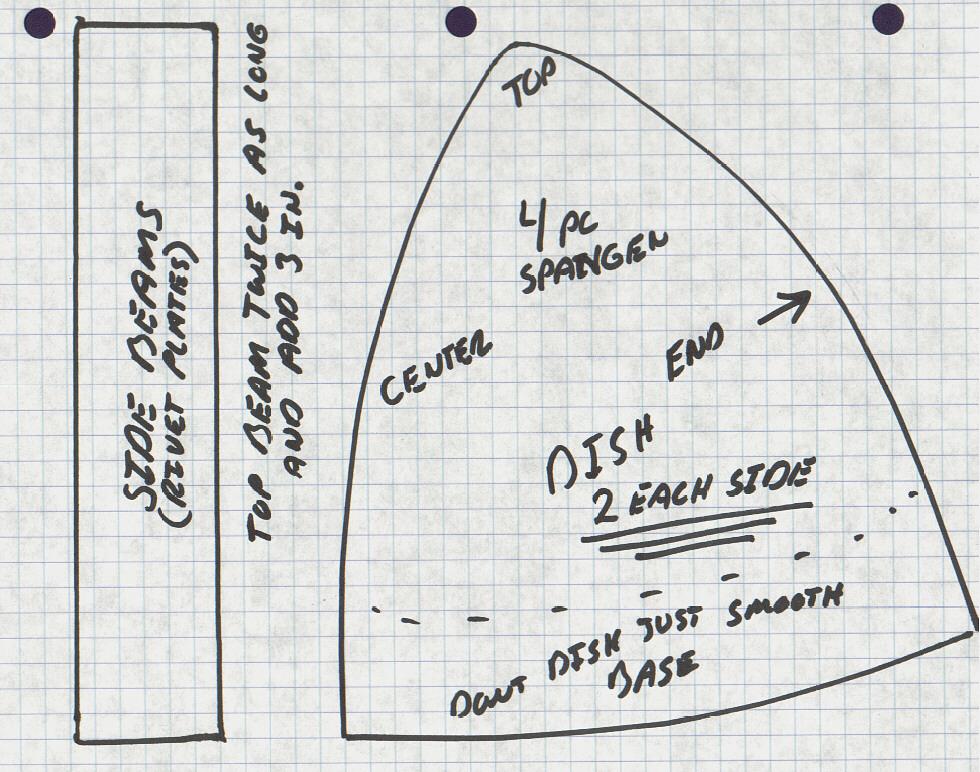 SIDE BEAMS
(RIVET PLATES)
TOP BEAM TWICE AS LONG
AND ADD 3 IN.
TOP
4 PC
SPANGEN
CENTER
END
DISH
2 EACH SIDE
DONT DISH JUST SMOOTH
BASE